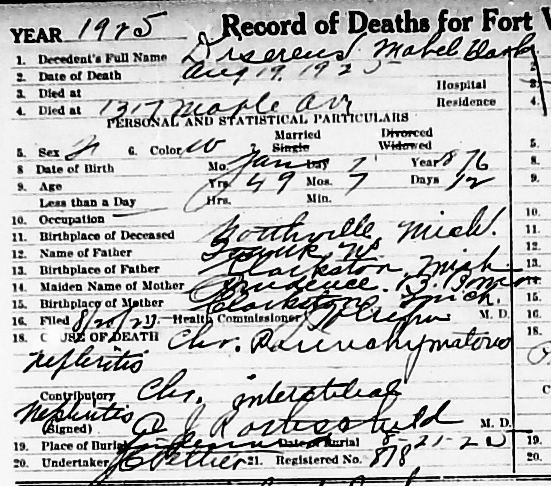 YEAR 1925 Record of Deaths for Fort
1. Decedent's Full Name Diserens Mabel Clark
2. Date of Death Aug 19, 1925
3. Died at Hospital
4. Died at 1317 Maple Ave Residence
PERSONAL AND STATISTICAL PARTICULARS
5. Sex F 6. Color W 7. Married Single Divorced Widowed
8 Date of Birth Mo. Jan Day 7 Year 876
9. Age Yrs. 49 Mos. 7 Days 12
Less than a Day Hrs. Min.
10. Occupation
11. Birthplace of Deceased Northville Mich.
12. Name of Father
13. Birthplace of Father Clarkston, Mich
14. Maiden Name of Mother Prudence
15. Birthplace of Mother Clarkston Mich.
16. Filed 8/20/25 17. Health Commissioner M. D.
18. CAUSE OF DEATH Chr. Parenchymatous
Nephritis
Contributory Chr. interstitial
Nephritis
(Signed) J Rothschild M. D.
19. Place of Burial Date of Burial 8-21-25
20. Undertaker Peltier 21. Registered No. 878
5.
8.
9.
10.
11.
12.
13.
14.
15.
16.
18.
19.
20.